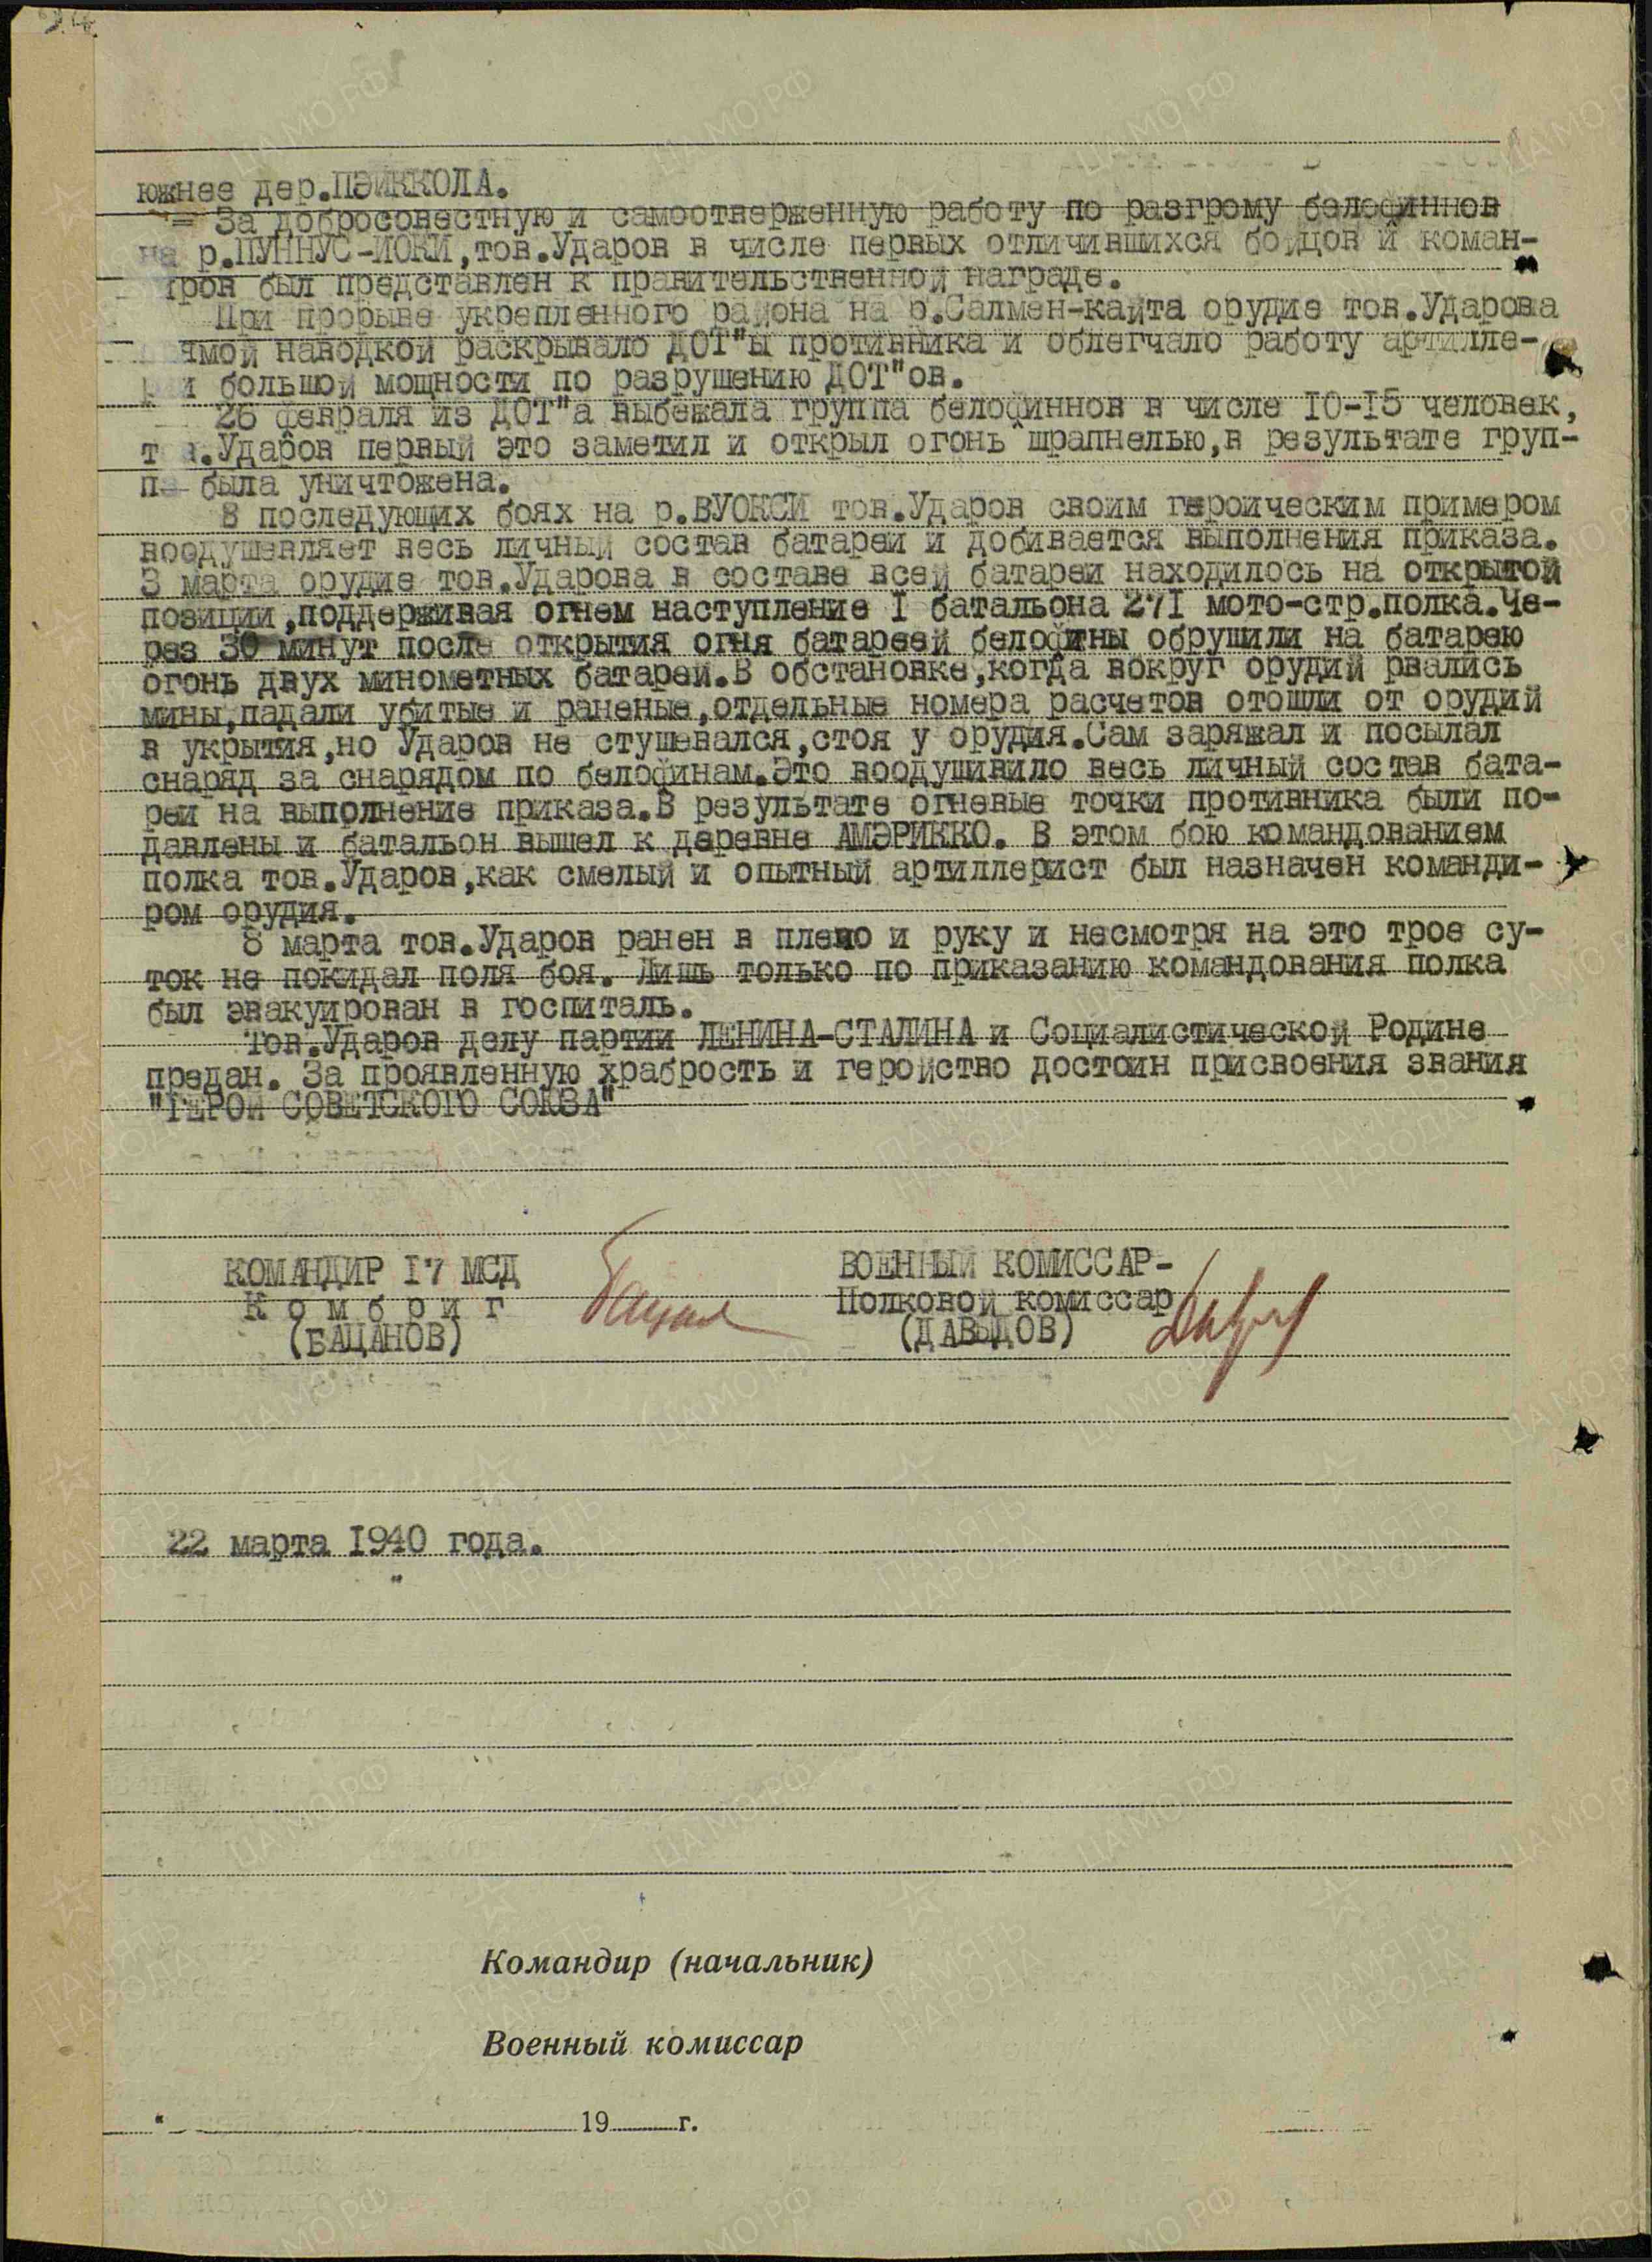 южнее дер.ПЭЙККОЛА.
За добросовестную и самоотверженную работу по разгрому белофиннов
на р.ПУННУС-ЙОКИ,тов.Ударов в числе первых отличившихся бойцов и коман-
ров был представлен к правительственной награде.
При прорыве укрепленного района на р.Салмен-кайта орудие тов.Ударова
ямой наводкой раскрывало ДОТ"ы противника и облегчало работу артилле-
и большой мощности по разрушению ДОТ"ов.
26 февраля из ДОТ"а выбежала группа белофиннов в числе 10-15 человек,
т в.Ударов первый это заметил и открыл огонь шрапнелью,в результате груп-
па была уничтожена.
В последующих боях на р.ВУОКСИ тов.Ударов своим героическим примером
воодушевляет весь личный состав батареи и добивается выполнения приказа.
3 марта орудие тов.Ударова в составе всей батареи находилось на открытой
позиции,поддерживая огнем наступление I батальона 271 мото-стр.полка.Че-
рез 30 минут после открытия огня батареей белофины обрушили на батарею
огонь двух минометных батарей.В обстановке,когда вокруг орудий рвались
мины,падали убитые и раненые,отдельные номера расчетов отошли от орудий
в укрытия,но Ударов не стушевался,стоя у орудия.Сам заряжал и посылал
снаряд за снарядом по белофинам.Это воодушивило весь личный состав бата-
реи на выполнение приказа.В результате огневые точки противника были по-
давлены и батальон вышел к деревне АМЭРИККО. В этом бою командованием
полка тов.Ударов,как смелый и опытный артиллерист был назначен команди-
ром орудия.
8 марта тов.Ударов ранен в плечо и руку и несмотря на это трое су-
ток не покидал поля боя. Лишь только по приказанию командования полка
был эвакуирован в госпиталь.
Тов.Ударов делу партии ЛЕНИНА-СТАЛИНА и Социалистической Родине
предан. За проявленную храбрость и геройство достоин присвоения звания
"ГЕРОЙ СОВЕТСКОГО СОЮЗА"
КОМАНДИР 17 МСД
Комбриг
(БАЦАНОВ)
ВОЕННЫЙ КОМИССАР-
Полковой комиссар
(ДАВЫДОВ)
22 марта 1940 года.
Командир (начальник)
Военный комиссар
19 г.
ЦАМО РФ
ПАМЯТЬ НАРОДА